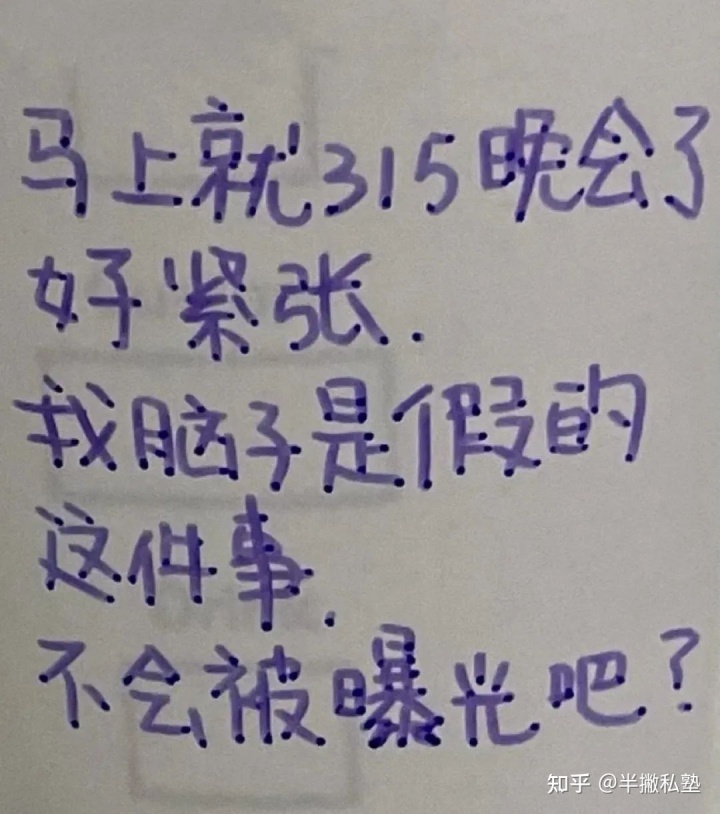 马上就315晚会了
好紧张.
我脑子是假的
这件事.
不会被曝光吧?
知乎 @半撇私塾